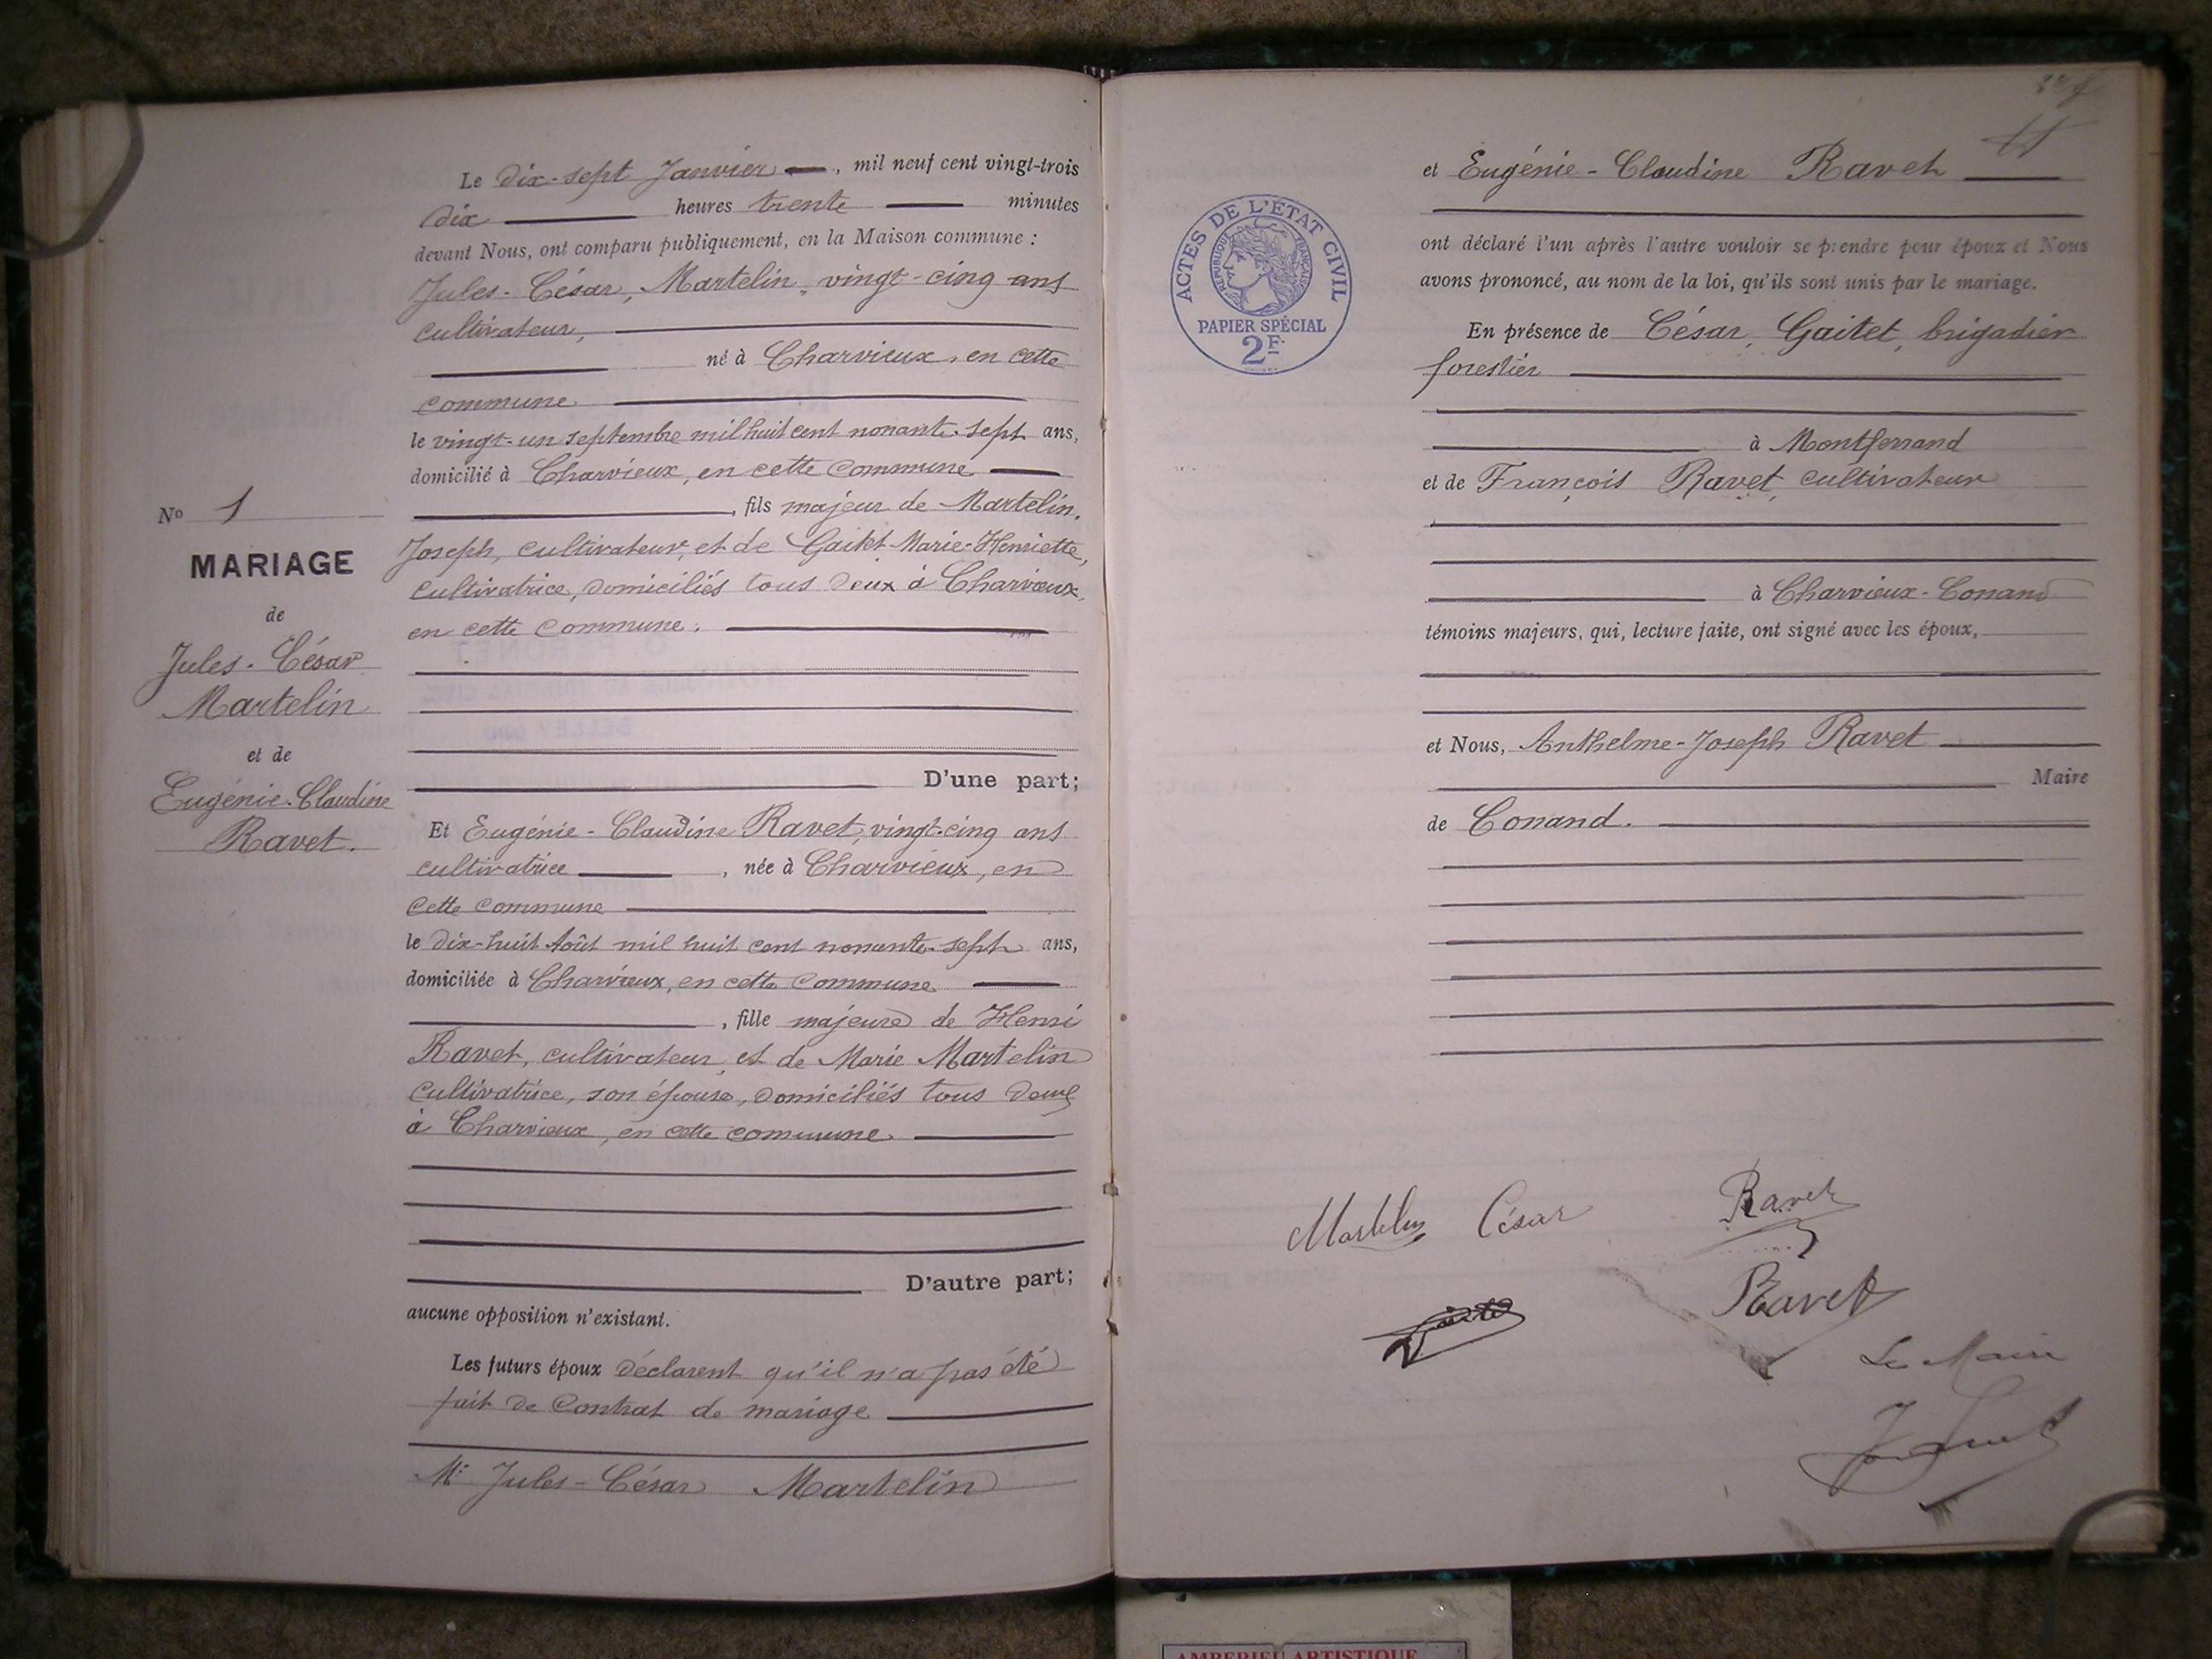 Nº 1
MARIAGE
de
Jules-César
Martelin
et de
Eugénie-Claudine
Ravet.
Le dix-sept Janvier, mil neuf cent vingt-trois
dix heures trente minutes
devant Nous, ont comparu publiquement, en la Maison commune :
Jules-César, Martelin, vingt-cinq ans
cultivateur,
né à Charvieux, en cette
commune
le vingt-un septembre mil huit cent nonante-sept ans,
domicilié à Charvieux, en cette commune
, fils majeur de Martelin,
Joseph, cultivateur, et de Gaitet Marie-Henriette,
cultivatrice, domiciliés tous deux à Charvieux,
en cette commune.
D'une part;
Et Eugénie-Claudine Ravet, vingt-cinq ans
cultivatrice, née à Charvieux, en
cette commune
le dix-huit Août mil huit cent nonante-sept ans,
domiciliée à Charvieux, en cette commune
, fille majeure de Henri
Ravet, cultivateur, et de Marie Martelin
cultivatrice, son épouse, domiciliés tous deux
à Charvieux, en cette commune
D'autre part;
aucune opposition n'existant.
Les futurs époux déclarent qu'il n'a pas été
fait de contrat de mariage
Mr Jules-César Martelin
et Eugénie-Claudine Ravet
ont déclaré l'un après l'autre vouloir se prendre pour époux et Nous
avons prononcé, au nom de la loi, qu'ils sont unis par le mariage.
ACTES DE L'ÉTAT CIVIL
RÉPUBLIQUE FRANÇAISE
PAPIER SPÉCIAL
2F
En présence de César, Gaitet, brigadier
forestier
à Montferrand
et de François Ravet, cultivateur
à Charvieux-Conand
témoins majeurs, qui, lecture faite, ont signé avec les époux,
et Nous, Anthelme-Joseph Ravet
Maire
de Conand.
Martelin César
Ravet
Gaitet
Ravet
Le Maire
AMBERIEU ARTISTIQUE